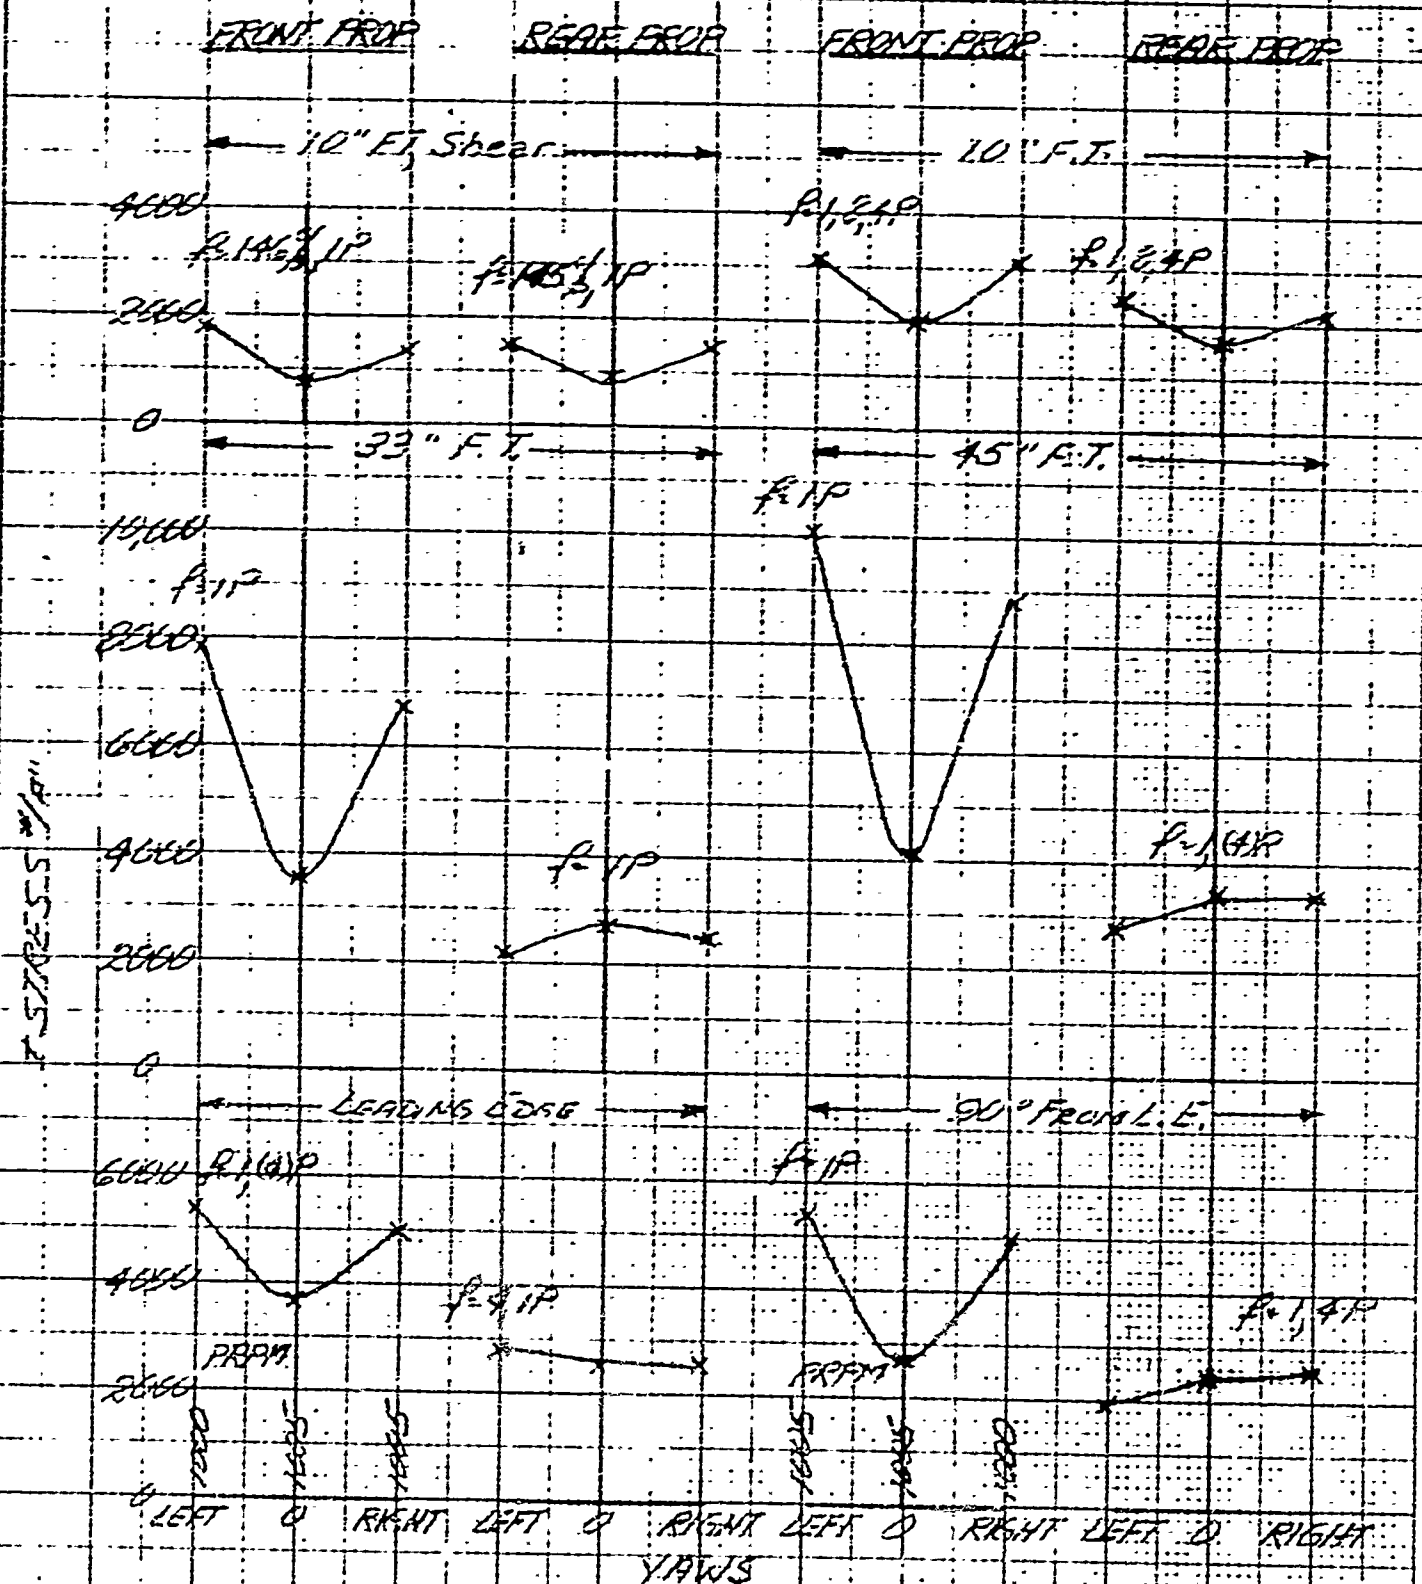 FRONT PROP REAR PROP FRONT PROP REAR PROP
10" F.T. Shear 10" F.T.
4000
f=1,2,4P
f=1,2,4P
2000
0
33" F.T. 45" F.T.
f=1P
10,000
f=1P
8000
6000
4000
f=1P
f=1,(4)P
2000
0
± STRESS #/□"
LEADING EDGE 90° FROM L.E.
6000 f=1,(4)P f=1P
4000
f=4,1P f=1,4P
PRPM PRPM
2000
1000 1005 1005 1005 1005 1000
0
LEFT 0 RIGHT LEFT 0 RIGHT LEFT 0 RIGHT LEFT 0 RIGHT
YAWS